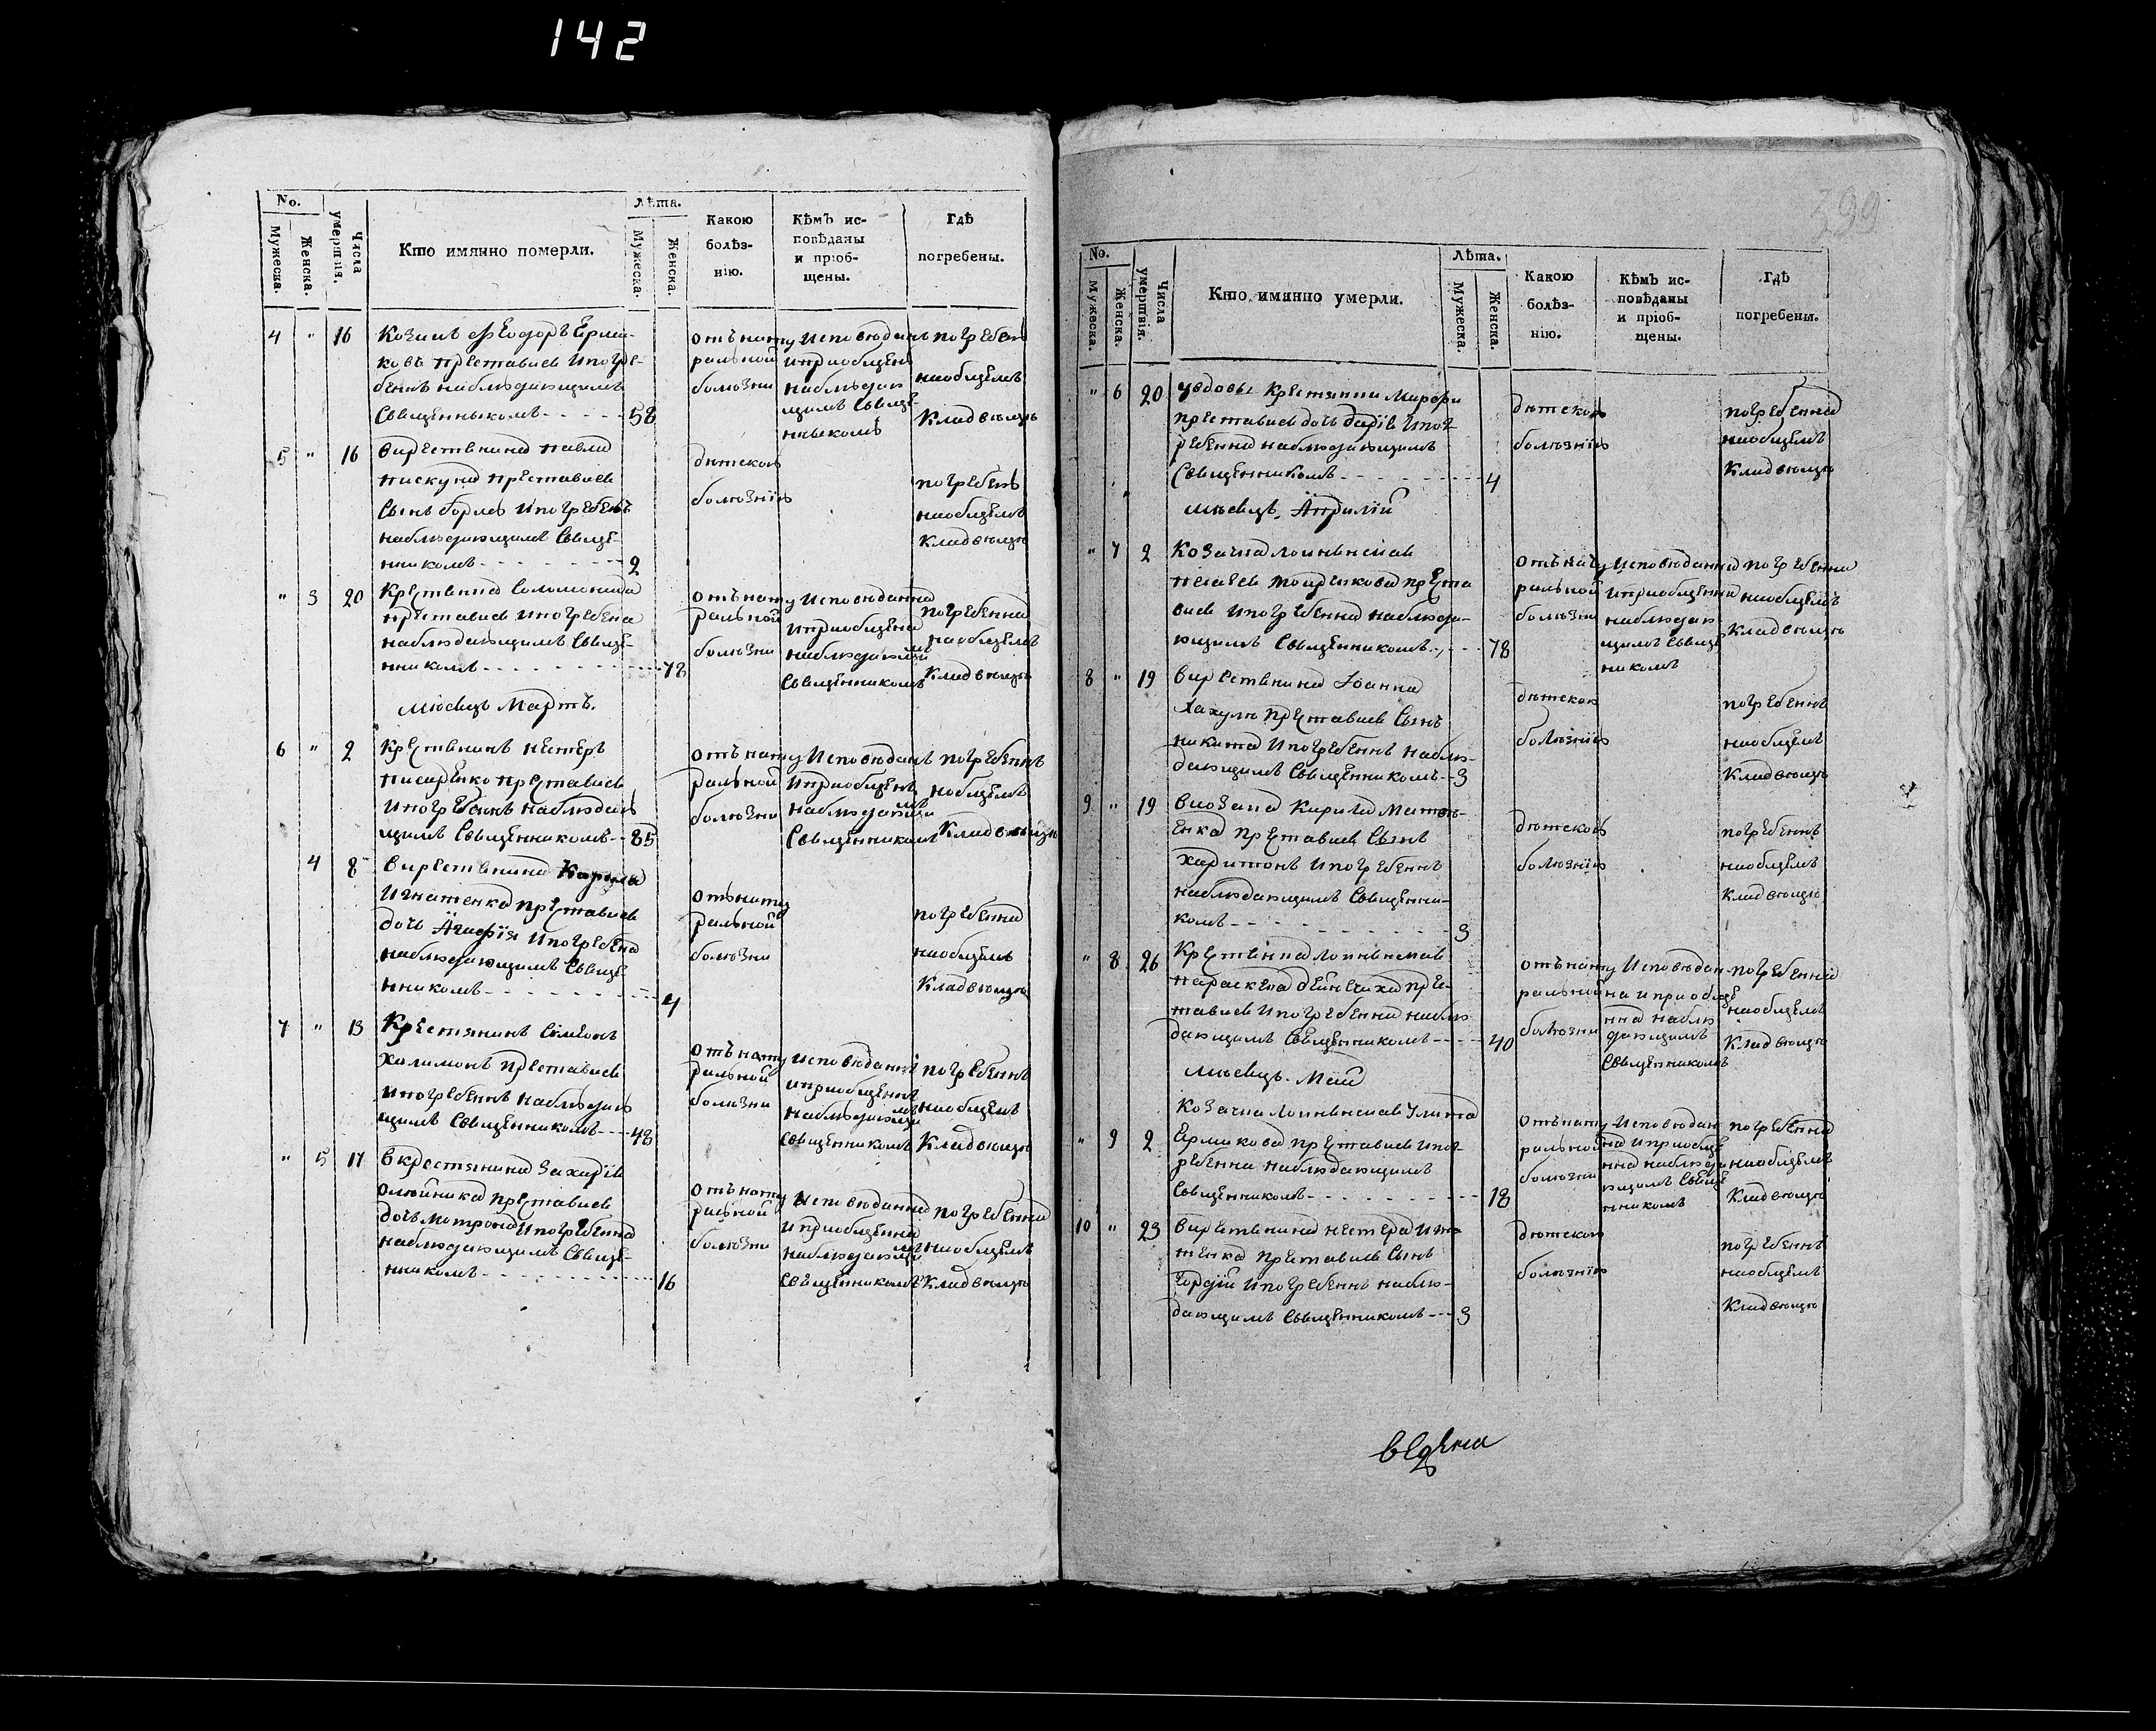 142
No.
Мужеска.
Женска.
Числа умертвія.
Кто имянно померли.
Лѣта.
Мужеска.
Женска.
Какою болѣз-
нію.
Кѣмъ ис-
повѣданы
и пріоб-
щены.
Гдѣ
погребены.
4 " 16 Козакъ Ѳеодоръ Ерма-
ковъ преставися и погре-
бенъ наблюдающимъ
Священникомъ - - - - - 58
отъ нату
ральной
болѣзни
исповѣданъ
и приобщенъ
наблюдаю
щимъ Свяще-
нникомъ
погребенъ
на общемъ
Кладвыщѣ
5 " 16 Павла
преставися
Сынъ и погребенъ
наблюдающимъ Свяще-
нникомъ - - - - - - - 2
дѣтскою
болѣзнію
погребенъ
на общемъ
Кладвыщѣ
" 3 20 Соломонида
преставися и погребена
наблюдающимъ Свяще-
нникомъ - - - - - - - 78
отъ нату
ральной
болѣзни
исповѣданна
и приобщена
наблюдающимъ
Священникомъ
погребенна
на общемъ
Кладвыщѣ
мѣсяцъ Мартъ.
6 " 2 Нестеръ
Писаренко преставися
и погребенъ наблюдаю
щимъ Священникомъ - - 85
отъ нату
ральной
болѣзни
исповѣданъ
и приобщенъ
наблюдающимъ
Священникомъ
погребеннъ
на общемъ
Кладвыщѣ
4 8
Игнатенка преставися
дочь Агафія и погребена
наблюдающимъ Свяще
нникомъ - - - - - - - 4
отъ нату
ральной
болѣзни
погребенна
на общемъ
Кладвыщѣ
7 " 13 Крестянинъ Симеонъ
Халимонъ преставися
и погребеннъ наблюдаю
щимъ Священникомъ - - - 48
отъ нату
ральной
болѣзни
исповѣданнъ
и приобщеннъ
наблюдающимъ
Священникомъ
погребеннъ
на общемъ
Кладвыщѣ
" 5 17 в крестянина Захарія
Олѣйника преставися
дочь Мотрона и погребенна
наблюдающимъ Свяще-
нникомъ - - - - - - - 16
отъ нату
ральной
болѣзни
исповѣданна
и приобщенна
наблюдающимъ
Священникомъ
погребенна
на общемъ
Кладвыщѣ
399
No.
Мужеска.
Женска.
Числа умертвія.
Кто имянно умерли.
Лѣта.
Мужеска.
Женска.
Какою
болѣз-
нію.
Кѣмъ ис-
повѣданы
и пріоб-
щены.
Гдѣ
погребены.
" 6 20 увдовы
преставися дочь Дарія и пог
ребенна наблюдающимъ
Священникомъ - - - - - - - 4
дѣтскою
болѣзнію
погребенна
на общемъ
Кладвыщѣ
мѣсяцъ. Априлій
" 7 2 Козачка
преста
вися и погребенна наблюда-
ющимъ Священникомъ - - - 78
отъ нату
ральной
болѣзни
исповѣданна
и приобщенна
наблюдаю
щимъ Свяще
никомъ
погребенна
на общемъ
Кладвыщѣ
8 " 19 Іоанна
преставися Сынъ
Никита и погребеннъ наблю-
дающимъ Священникомъ - - 3
дѣтскою
болѣзнію
погребеннъ
на общемъ
Кладвыщѣ
9 " 19 Кирила Матвѣ-
енка преставися Сынъ
Харитонъ и погребеннъ
наблюдающимъ Священни-
комъ - - - - - - - 3
дѣтскою
болѣзнію
погребеннъ
на общемъ
Кладвыщѣ
" 8 26
пре-
тавися и погребенна наблю
дающимъ Священникомъ - - - - 40
отъ нату
ральной
болѣзни
исповѣдан-
на и приобще
нна наблю
дающимъ
Священникомъ
погребенна
на общемъ
Кладвыщѣ
мѣсяцъ. Маій
Козачка Улита
" 9 2 Ермакова преставися и пог-
ребенна наблюдающимъ
Священникомъ - - - - - - - 18
отъ нату
ральной
болѣзни
исповѣдан
на и приобще
нна наблюда
ющимъ Свяще
нникомъ
погребенна
на общемъ
Кладвыщѣ
10 " 23 Нестера
преставися Сынъ
Гордій и погребеннъ наблю-
дающимъ Священникомъ - - - 3
дѣтскою
болѣзнію
погребеннъ
на общемъ
Кладвыщѣ